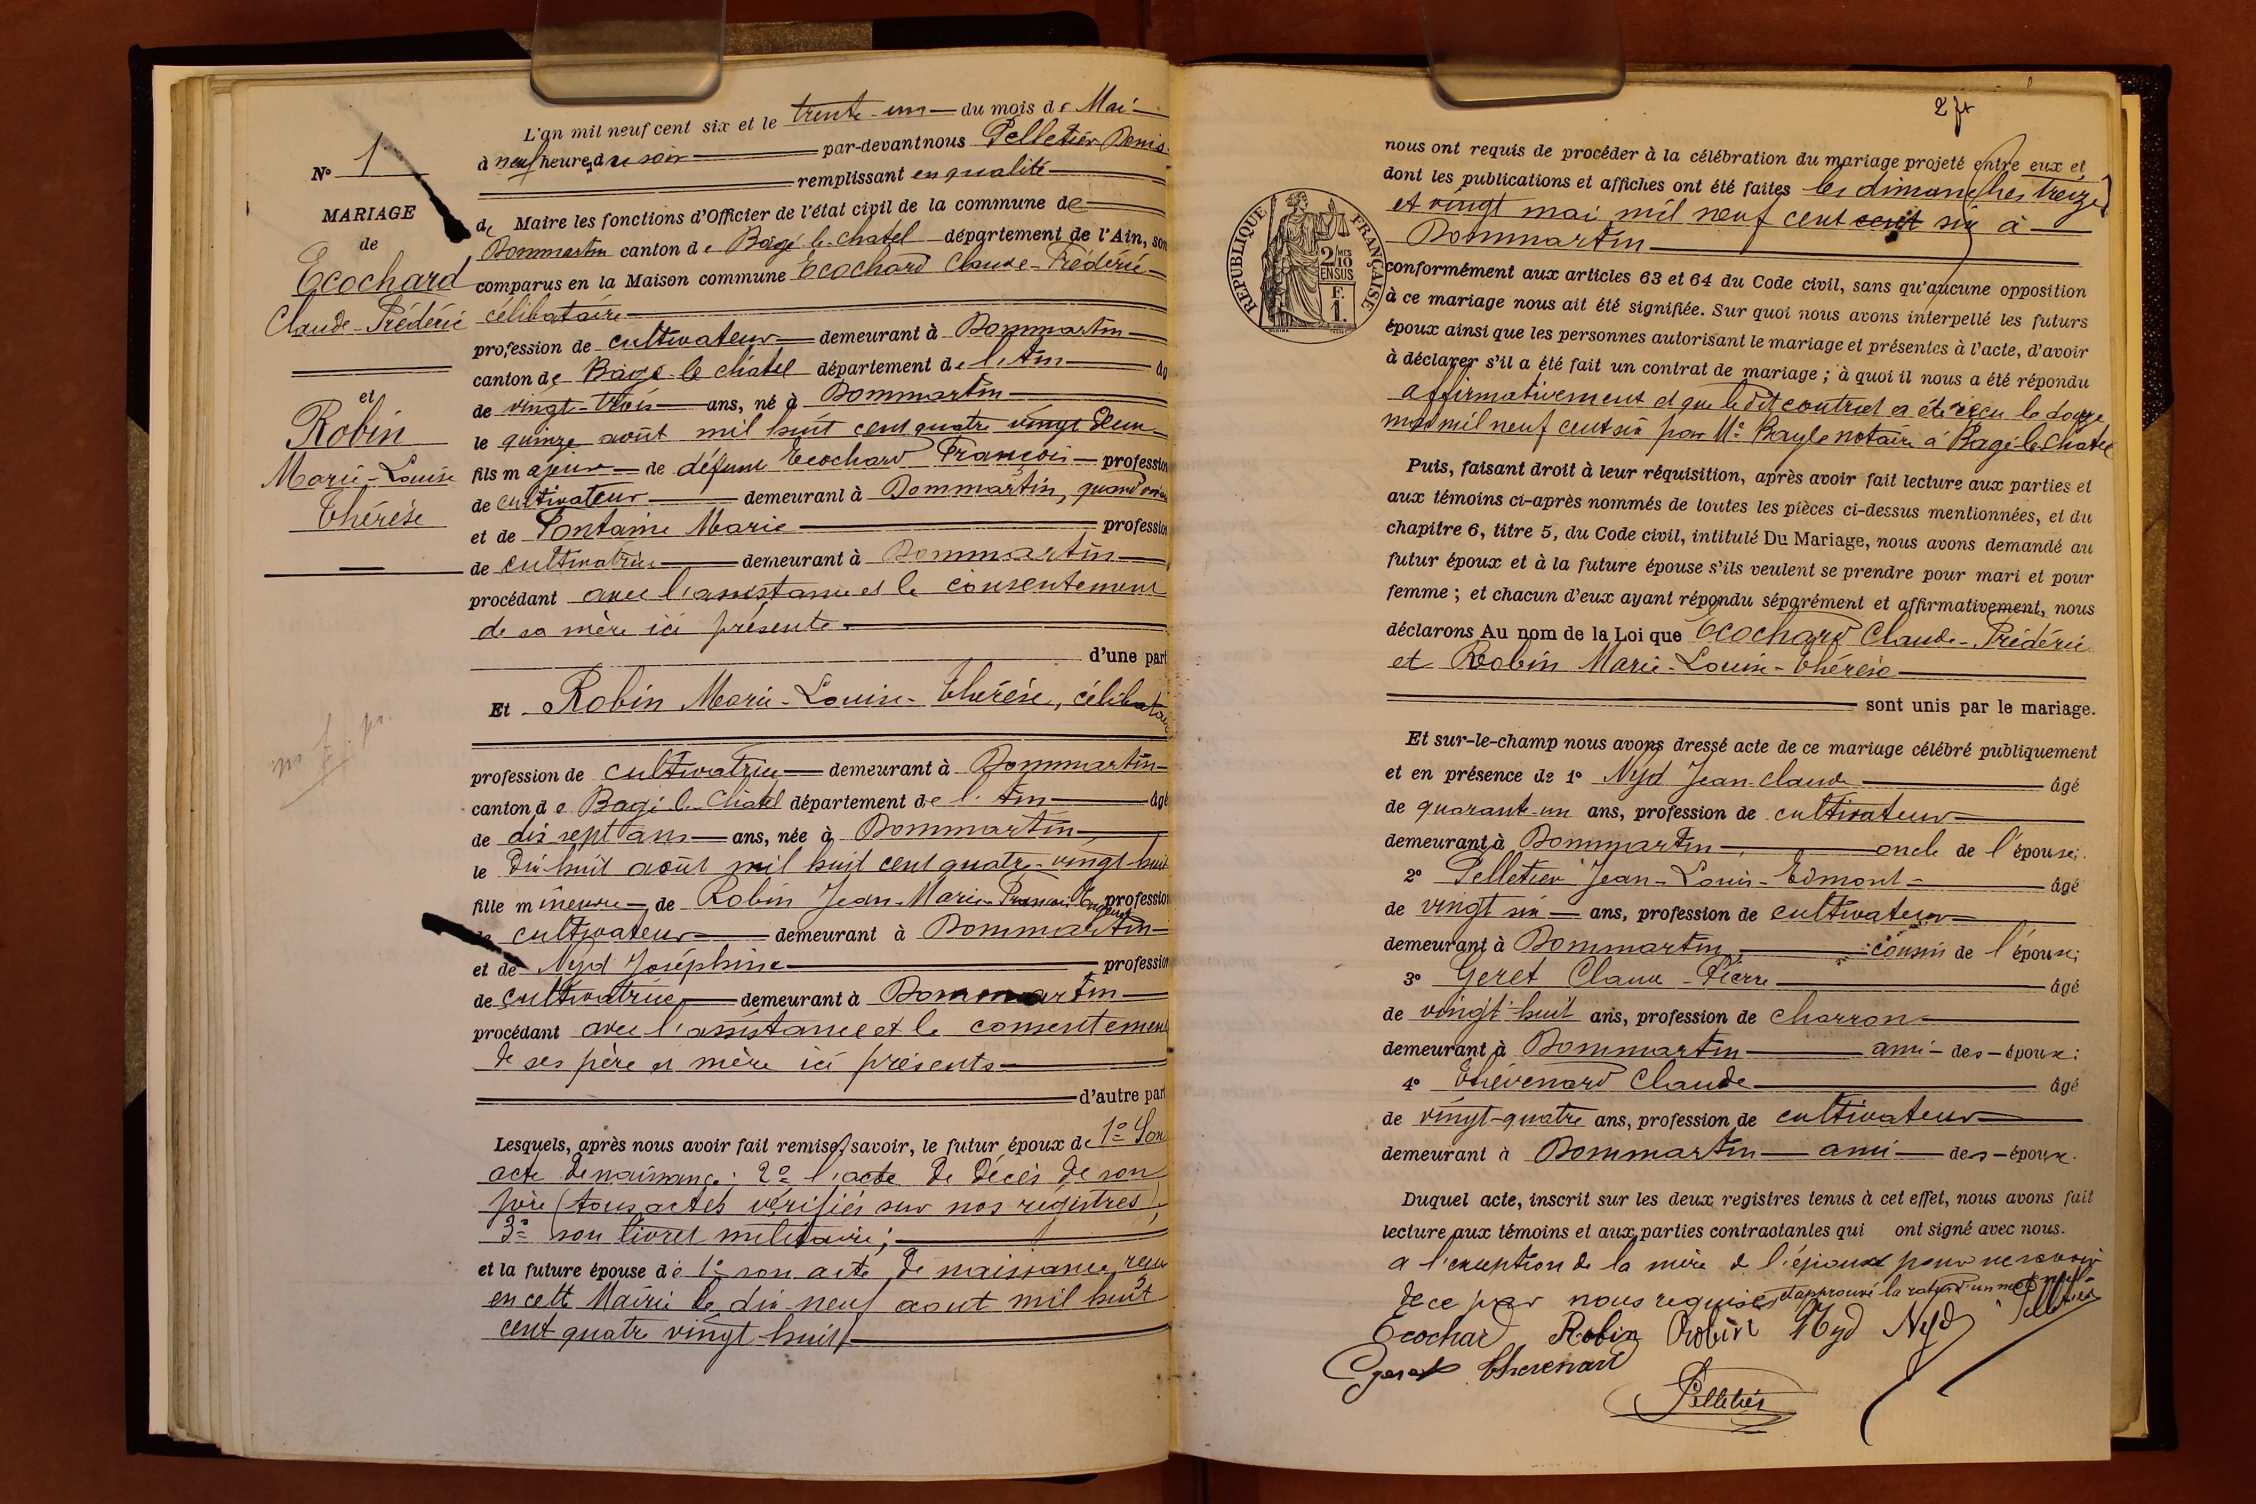 N° 1
MARIAGE
de
Ecochard
Claude-Frédéric
et
Robin
Marie-Louise
Thérèse
L'an mil neuf cent six et le trente-un du mois de Mai
à neuf heures du soir par-devant nous Pelletier Denis
remplissant en qualité
de Maire les fonctions d'Officier de l'état civil de la commune de
Dommartin canton de Bâgé-le-Châtel département de l'Ain, son
comparus en la Maison commune Ecochard Claude-Frédéric
célibataire
profession de cultivateur demeurant à Dommartin
canton de Bâgé-le-châtel département de l'Ain âg
de vingt-trois ans, né à Dommartin
le quinze août mil huit cent quatre vingt deux
fils majeur de défunt Ecochard François profession
de cultivateur demeurant à Dommartin, quand vivait
et de Fontaine Marie profession
de cultivatrice demeurant à Dommartin
procédant avec l'assistance et le consentement
de sa mère ici présente
d'une part
Et Robin Marie-Louise-Thérèse, célibataire
profession de cultivatrice demeurant à Dommartin
canton de Bâgé-le-Châtel département de l'Ain âgé
de dix sept ans ans, née à Dommartin
le dix-huit août mil huit cent quatre-vingt-huit
fille mineure de Robin Jean-Marie-François Eugène profession
de cultivateur demeurant à Dommartin
et de Nyd Joséphine profession
de cultivatrice demeurant à Dommartin
procédant avec l'assistance et le consentement
de ses père et mère ici présents
d'autre part
Lesquels, après nous avoir fait remise, savoir, le futur époux de 1° Son
acte de naissance; 2° l'acte de décès de son
père (tous actes vérifiés sur nos registres),
3° son livret militaire;
et la future épouse de 1° son acte de naissance reçu
en cette Mairie le dix-neuf aout mil huit
cent quatre vingt-huit
2 ft
nous ont requis de procéder à la célébration du mariage projeté entre eux et
dont les publications et affiches ont été faites les dimanches treize
et vingt mai mil neuf cent cent six à
Dommartin
RÉPUBLIQUE FRANÇAISE
2/10 MES
EN SUS
F.
1.
conformément aux articles 63 et 64 du Code civil, sans qu'aucune opposition
à ce mariage nous ait été signifiée. Sur quoi nous avons interpellé les futurs
époux ainsi que les personnes autorisant le mariage et présentes à l'acte, d'avoir
à déclarer s'il a été fait un contrat de mariage; à quoi il nous a été répondu
affirmativement et que ledit contrat a été reçu le douze
mai mil neuf cent six par Me Bayle notaire à Bâgé-le-Châtel
Puis, faisant droit à leur réquisition, après avoir fait lecture aux parties et
aux témoins ci-après nommés de toutes les pièces ci-dessus mentionnées, et du
chapitre 6, titre 5, du Code civil, intitulé Du Mariage, nous avons demandé au
futur époux et à la future épouse s'ils veulent se prendre pour mari et pour
femme; et chacun d'eux ayant répondu séparément et affirmativement, nous
déclarons Au nom de la Loi que Ecochard Claude-Frédéric
et Robin Marie-Louise-Thérèse
sont unis par le mariage.
Et sur-le-champ nous avons dressé acte de ce mariage célébré publiquement
et en présence de 1° Nyd Jean-Claude âgé
de quarante-un ans, profession de cultivateur
demeurant à Dommartin, oncle de l'épouse;
2° Pelletier Jean-Louis-Edmont âgé
de vingt six ans, profession de cultivateur
demeurant à Dommartin, cousin de l'épouse;
3° Geret Claude-Pierre âgé
de vingt-huit ans, profession de charron
demeurant à Dommartin ami des époux;
4° Thévenard Claude âgé
de vingt-quatre ans, profession de cultivateur
demeurant à Dommartin ami des époux.
Duquel acte, inscrit sur les deux registres tenus à cet effet, nous avons fait
lecture aux témoins et aux parties contractantes qui ont signé avec nous.
a l'exception de la mère de l'époux pour ne savoir
de ce par nous requise, et approuvé la rature d'un mot nul
Ecochard Robin Robin Nyd Nyd Pelletier
Geret Thevenard
Pelletier